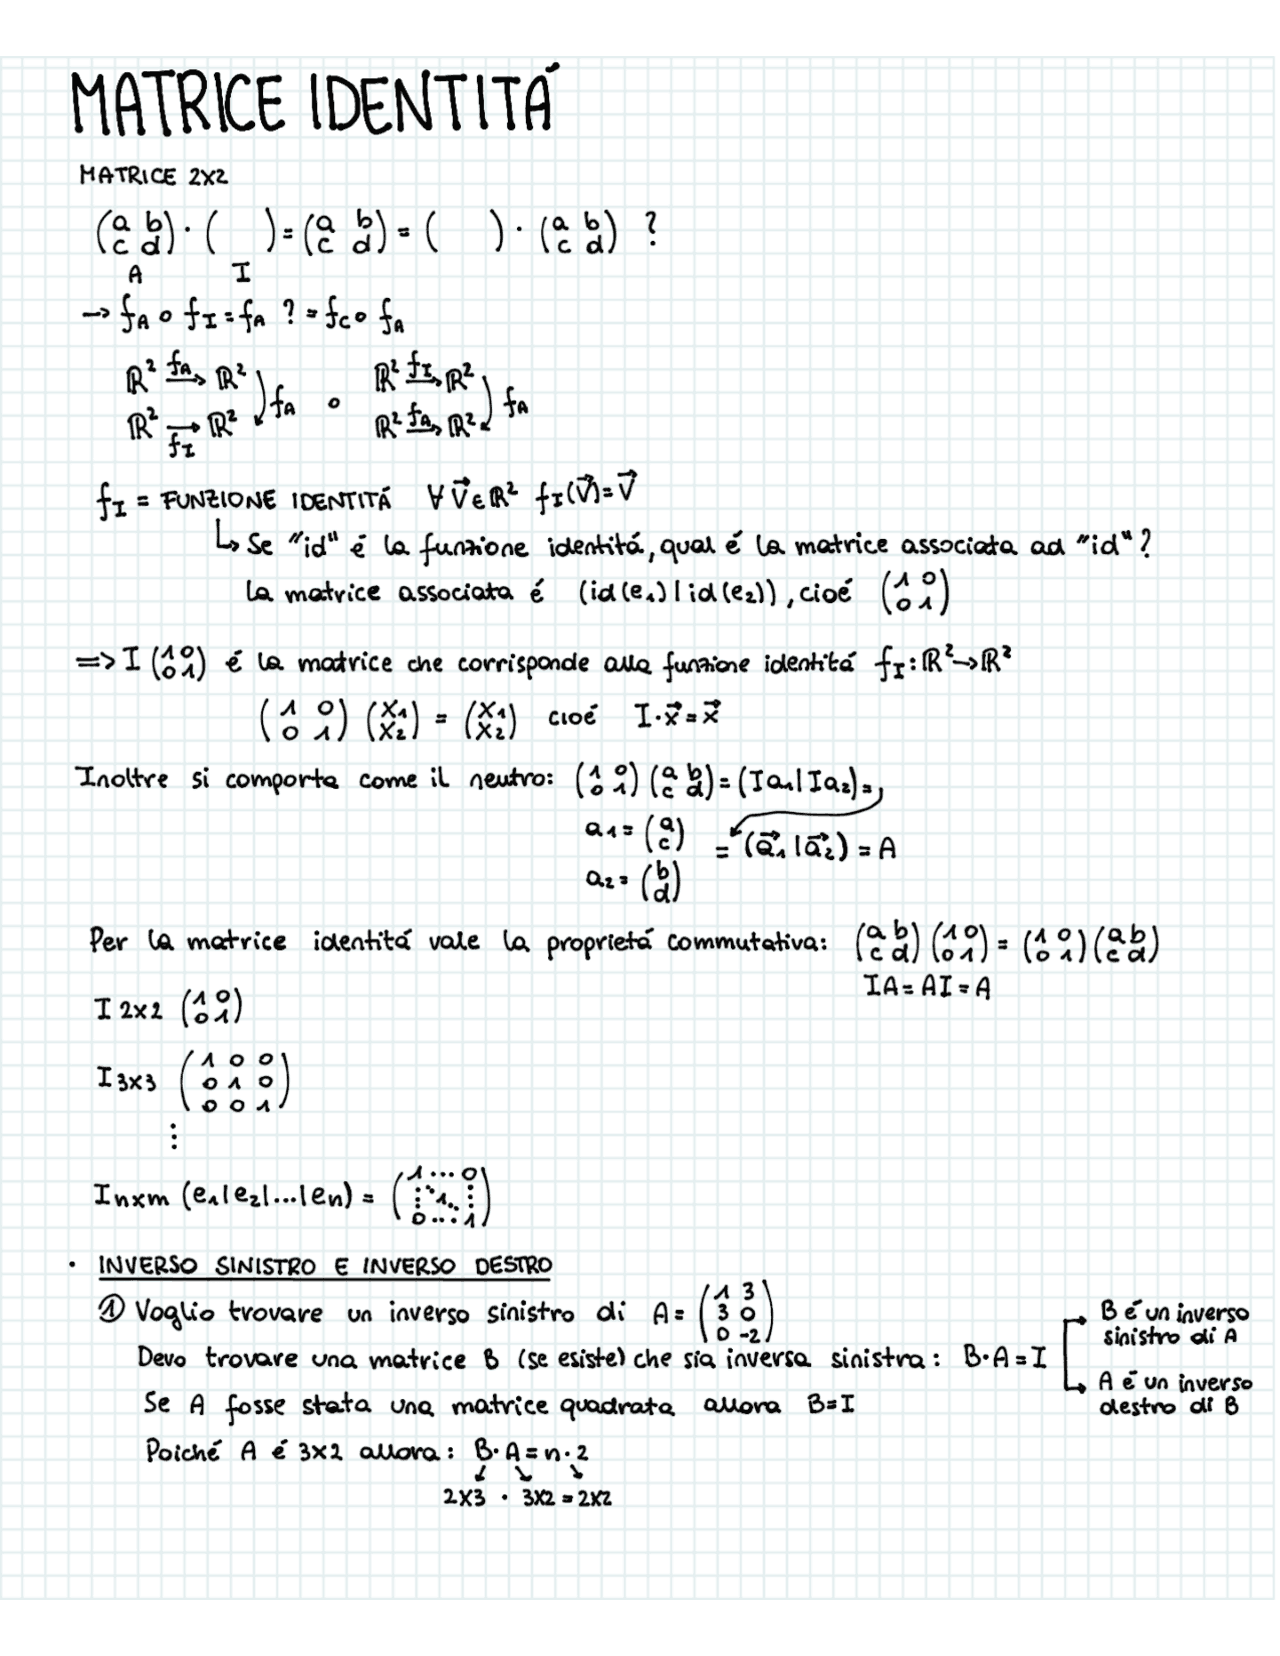 MATRICE IDENTITÁ
MATRICE 2x2
(a b / c d) · (    ) = (a b / c d) = (    ) · (a b / c d) ?
A I
→ f_A ∘ f_I = f_A ? = f_C ∘ f_A
ℝ² f_A→ ℝ² ) f_A ∘ ℝ² f_I→ ℝ² ) f_A
ℝ² →f_I ℝ² ℝ² f_A→ ℝ²
f_I = FUNZIONE IDENTITÁ ∀ v⃗ ∈ ℝ² f_I(v⃗) = v⃗
↳ Se "id" é la funzione identitá, qual é la matrice associata ad "id"?
la matrice associata é (id(e₁) | id(e₂)), cioé (1 0 / 0 1)
=> I (1 0 / 0 1) é la matrice che corrisponde alla funzione identitá f_I : ℝ² → ℝ²
(1 0 / 0 1) (x₁ / x₂) = (x₁ / x₂) cioé I · x⃗ = x⃗
Inoltre si comporta come il neutro: (1 0 / 0 1) (a b / c d) = (Ia₁ | Ia₂) =
a₁ = (a / c) = (a⃗₁ | a⃗₂) = A
a₂ = (b / d)
Per la matrice identitá vale la proprietá commutativa: (a b / c d) (1 0 / 0 1) = (1 0 / 0 1) (a b / c d)
IA = AI = A
I 2x2 (1 0 / 0 1)
I 3x3 (1 0 0 / 0 1 0 / 0 0 1)
⋮
I nxm (e₁ | e₂ | ... | en) = (1 ... 0 / ⋮ ⋱ 1 ⋱ ⋮ / 0 ... 1)
· INVERSO SINISTRO E INVERSO DESTRO
① Voglio trovare un inverso sinistro di A = (1 3 / 3 0 / 0 -2)
Devo trovare una matrice B (se esiste) che sia inversa sinistra: B · A = I
→ B é un inverso
sinistro di A
→ A é un inverso
destro di B
Se A fosse stata una matrice quadrata allora B = I
Poiché A é 3x2 allora: B · A = n · 2
↙ ↘ ↘
2x3 · 3x2 = 2x2